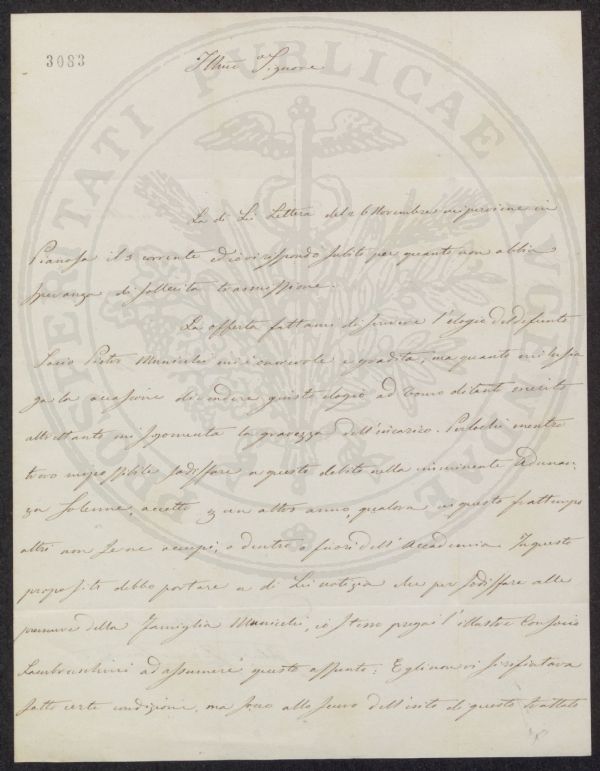 3083
Illmo Signore
La di Lei Lettera del 26 Novembre mi perviene in
Pianosa il 3 corrente ed io vi rispondo subito per quanto non abbia
speranza di sollecita trasmissione.
La offerta fattami di scrivere l'elogio del defunto
Socio Pietro Municchi mi è onorevole e gradita, ma quanto mi lusin
ga la occasione di rendere giusto elogio ad Uomo di tanto merito
altrettanto mi sgomenta la gravezza dell'incarico. Perlochè mentre
trovo impossibile sodisfare a questo debito nella imminente Adunan,
za Solenne, accetto un altro anno, qualora in questo frattempo
altri non se ne occupi, o dentro o fuori dell'Accademia. In questo
proposito debbo portare a di Lei notizia che per sodisfare alle
premure della Famiglia Municchi, io stesso pregai l'illustre Consocio
Lambruschini ad assumere questo assunto: Egli non vi si rifiutava
sotto certe condizioni, ma sono allo scuro dell'esito di questo trattato
PROSPERITATI PUBLICAE AUGENDAE